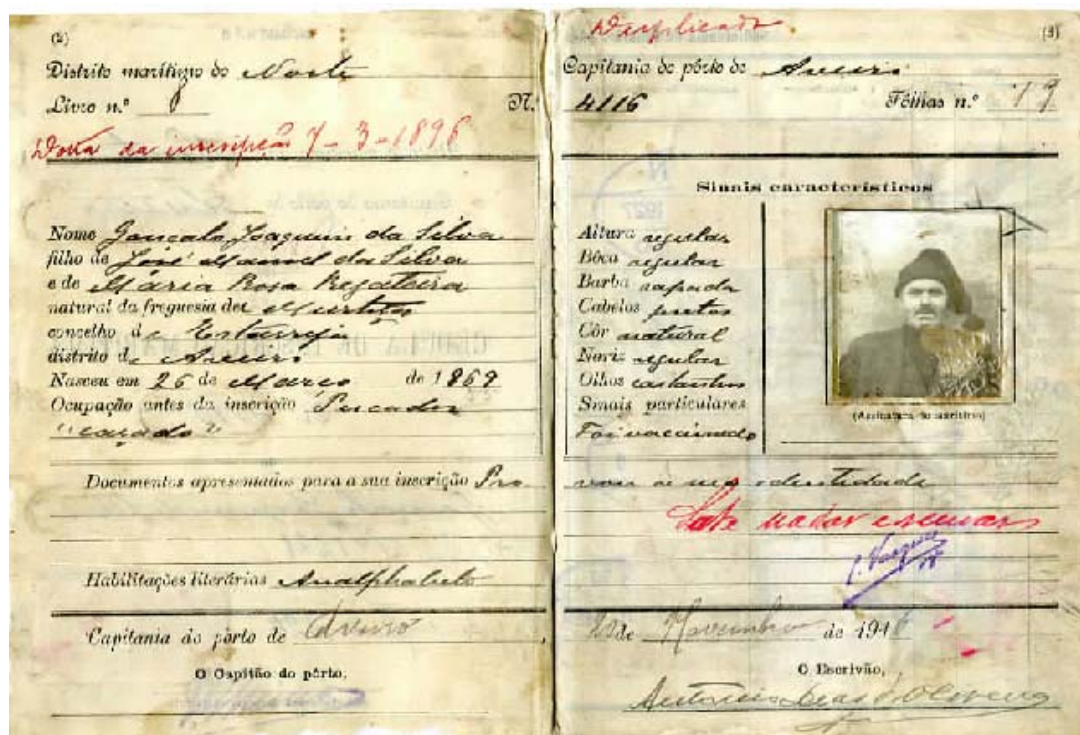 (2)
Distrito marítimo do Norte
Livro n.º
N.º
Data da inscripção 7-3-1896
Nome Gonçalo Joaquim da Silva
filho de José Manuel da Silva
e de Maria Rosa Regateira
natural da freguesia de Murtosa
concelho de Estarreja
distrito de Aveiro
Nasceu em 26 de Março de 1869
Ocupação antes da inscrição Pescador
"casado"
Documentos apresentados para a sua inscrição Pro
Habilitações literárias Analphabeto
Capitania do pôrto de Aveiro
O Capitão do pôrto,
Duplicado
(3)
Capitania do pôrto de Aveiro
4116 Fôlhas n.º 19
Sinais característicos
Altura regular
Bôca regular
Barba rapada
Cabelos pretos
Côr natural
Nariz regular
Olhos castanhos
Sinais particulares
Foi vaccinado
(Assinatura do marítimo)
vou a sua identidade
Sabe nadar e remar
de Novembro de 191
O Escrivão,
Antonio Dias d'Oliveira